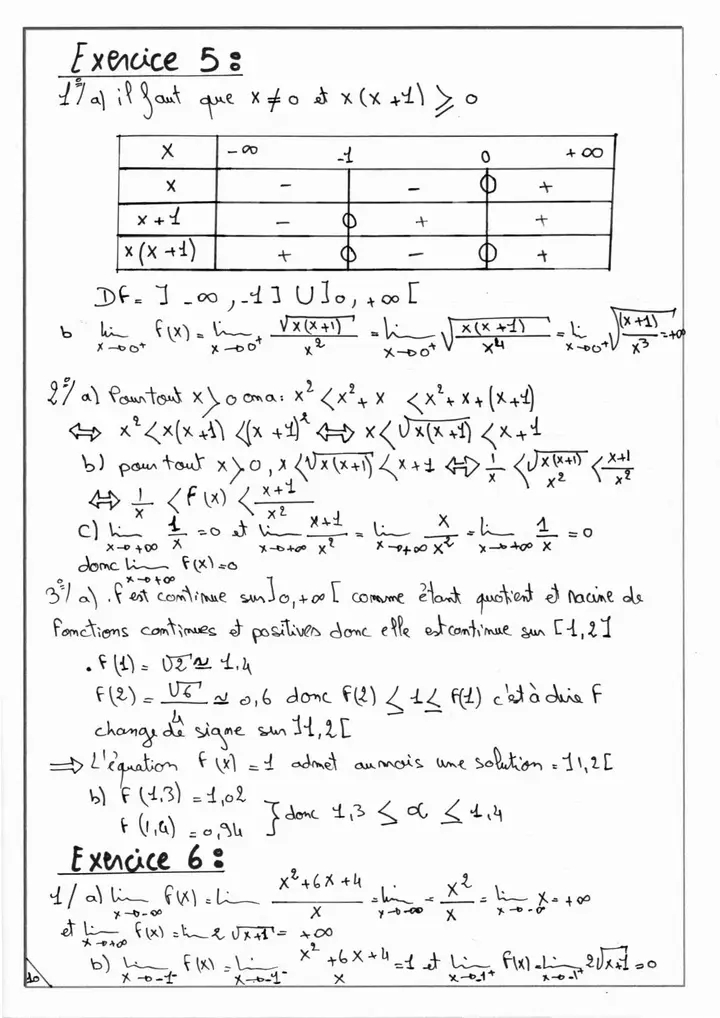 Exercice 5 :
1°/ a) il faut que x ≠ 0 et x(x+1) ⩾ 0
x | -∞ -1 0 +∞
x | - - 0 +
x+1 | - 0 + +
x(x+1) | + 0 - 0 +
Df = ]-∞, -1] ∪ ]0, +∞[
b lim x→0⁺ f(x) = lim x→0⁺ √(x(x+1)) / x² = lim x→0⁺ √(x(x+1) / x⁴) = li x→0⁺ √((x+1) / x³) = +∞
2°/ a) Pour tout x > 0 on a : x² < x² + x < x² + x + (x+1)
⇔ x² < x(x+1) < (x+1)² ⇔ x < √(x(x+1)) < x+1
b) pour tout x > 0, x < √(x(x+1)) < x+1 ⇔ 1/x < √(x(x+1)) / x² < x+1 / x²
⇔ 1/x < f(x) < x+1 / x²
c) lim x→+∞ 1/x = 0 et lim x→+∞ x+1 / x² = lim x→+∞ x / x² = lim x→+∞ 1/x = 0
donc lim x→+∞ f(x) = 0
3°/ a) . f est continue sur ]0, +∞[ comme étant quotient et racine de
fonctions continues et positives donc elle est continue sur [1,2]
. f(1) = √2 ≃ 1,4
f(2) = √6 / 4 ≃ 0,6 donc f(2) ⩽ 1 ⩽ f(1) c'est à dire f
change de signe sur ]1,2[
⇒ L'équation f(x) = 1 admet au mois une solution = ]1,2[
b) f(1,3) = 1,02
f(1,4) = 0,94 } donc 1,3 ⩽ α ⩽ 1,4
Exercice 6 :
1/ a) lim x→-∞ f(x) = lim x²+6x+4 / x = lim x→-∞ = x² / x = lim x→-∞ x = +∞
et lim x→+∞ f(x) = lim 2√(x+1) = +∞
b) lim x→-1⁻ f(x) = lim x→-1⁻ x²+6x+4 / x = 1 et lim x→-1⁺ f(x) = lim x→-1⁺ 2√(x+1) = 0
10